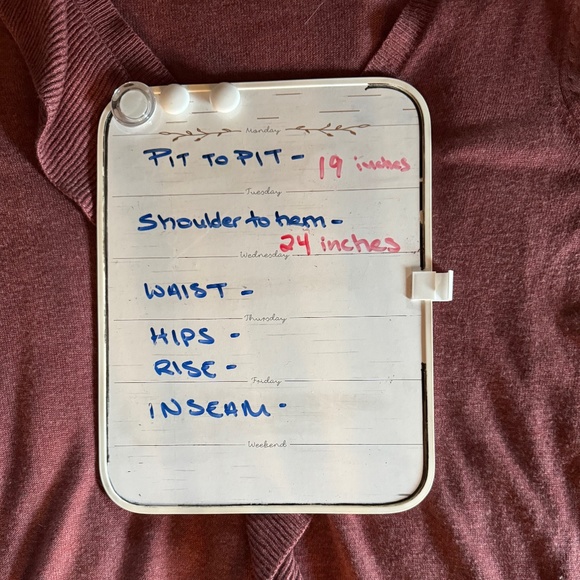 Monday
PIT TO PIT - 19 inches
Tuesday
Shoulder to hem -
24 inches
Wednesday
WAIST -
Thursday
HIPS -
RISE -
Friday
INSEAM -
Weekend